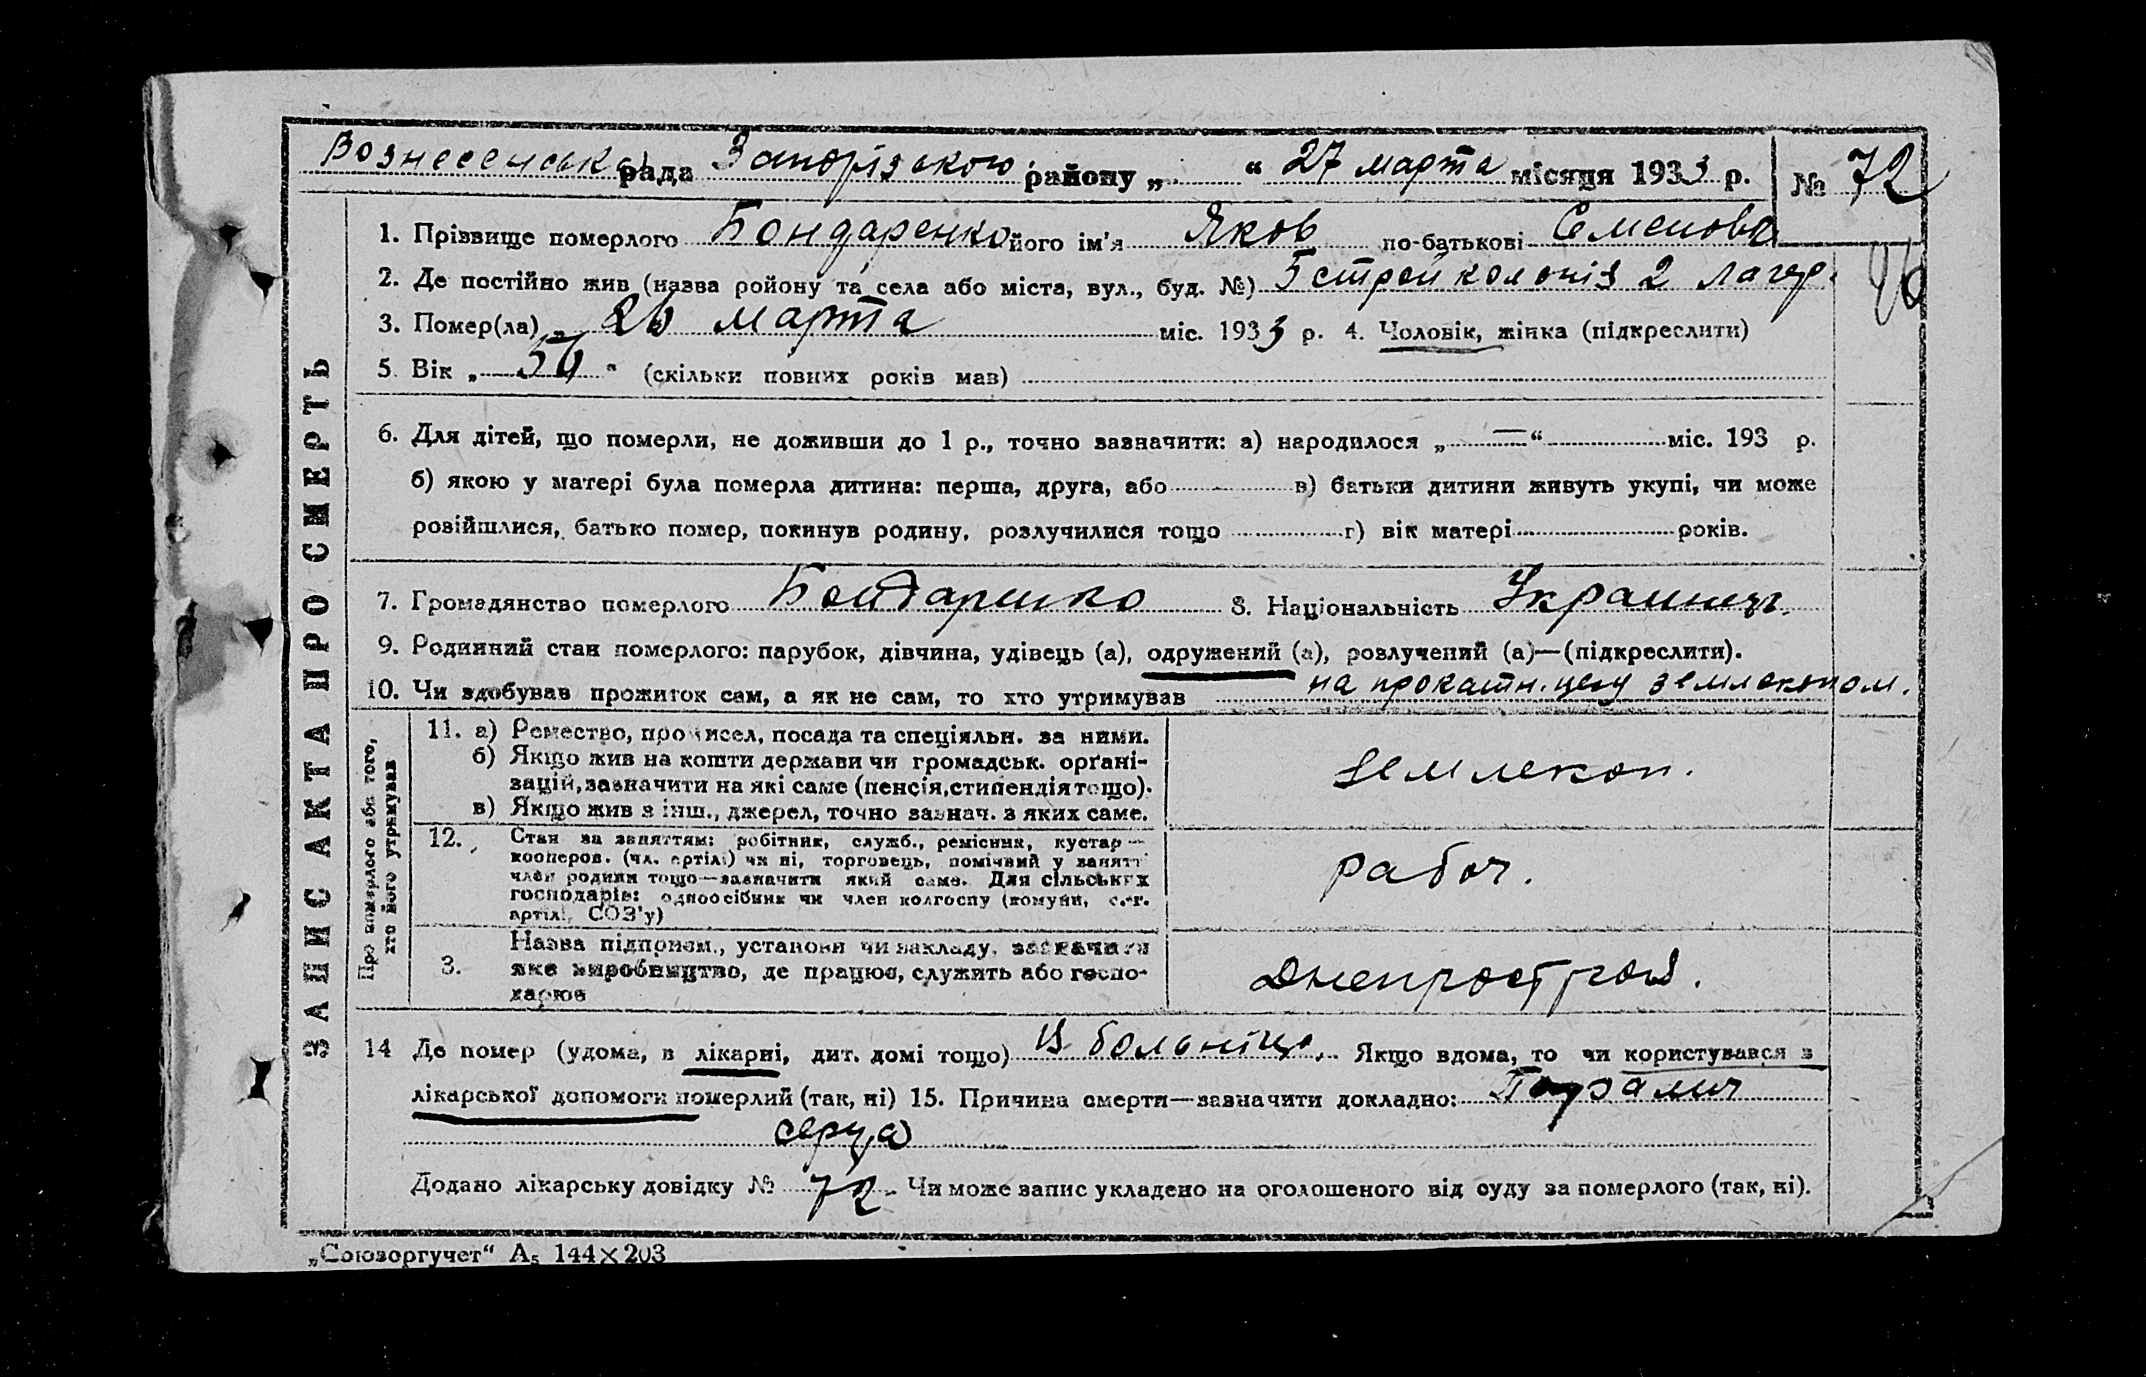 Вознесенська рада Запорізького району „ “ 27 марта місяця 1933 р. № 72
1. Прізвище померлого Бондаренко його ім'я Яков по-батькові Семенов
2. Де постійно жив (назва ройону та села або міста, вул., буд. №) 5 строй колонія 2 лагер.
3. Помер(ла) „ 26 марта міс. 1933 р. 4. Чоловік, жінка (підкреслити)
5. Вік „ 56 “ (скільки повних років мав)
6. Для дітей, що померли, не доживши до 1 р., точно зазначити: а) народилося „ — “ міс. 193 р.
б) якою у матері була померла дитина: перша, друга, або в) батьки дитини живуть укупі, чи може
розійшлися, батько помер, покинув родину, розлучилися тощо г) вік матері років.
7. Громадянство померлого Бондаренко 8. Національність Украинец.
9. Родинний стан померлого: парубок, дівчина, удівець (а), одружений (а), розлучений (а)—(підкреслити).
10. Чи здобував прожиток сам, а як не сам, то хто утримував на прокатн. цеху землекопом.
ЗАПИС АКТА ПРО СМЕРТЬ
Про померлого або того,
хто його утримував
11. а) Ремество, промисел, посада та спеціяльн. за ними.
б) Якщо жив на кошти держави чи громадськ. орґані-
зацій, зазначити на які саме (пенсія, стипендія тощо).
в) Якщо жив з інш., джерел, точно зазнач. з яких саме.
землекоп.
12. Стан за заняттям: робітник, служб., ремісник, кустар —
кооперов. (чл. артілі) чи ні, торговець, помічний у занятт
член родини тощо—зазначити який саме. Для сільських
господарів: одноосібник чи член колгоспу (комуни, с.-г.
артілі, СОЗ'у)
рабоч.
3. Назва підприєм., установи чи закладу, зазначити
яке виробництво, де працює, служить або госпо-
дарює
Днепрострой.
14 Де помер (удома, в лікарні, дит. домі тощо) в больнице. Якщо вдома, то чи користувався з
лікарської допомоги померлий (так, ні) 15. Причина смерти—зазначити докладно: Паралич
серца
Додано лікарську довідку № 72. Чи може запис укладено на оголошеного від суду за померлого (так, ні).
„Союзоргучет“ А5 144×203